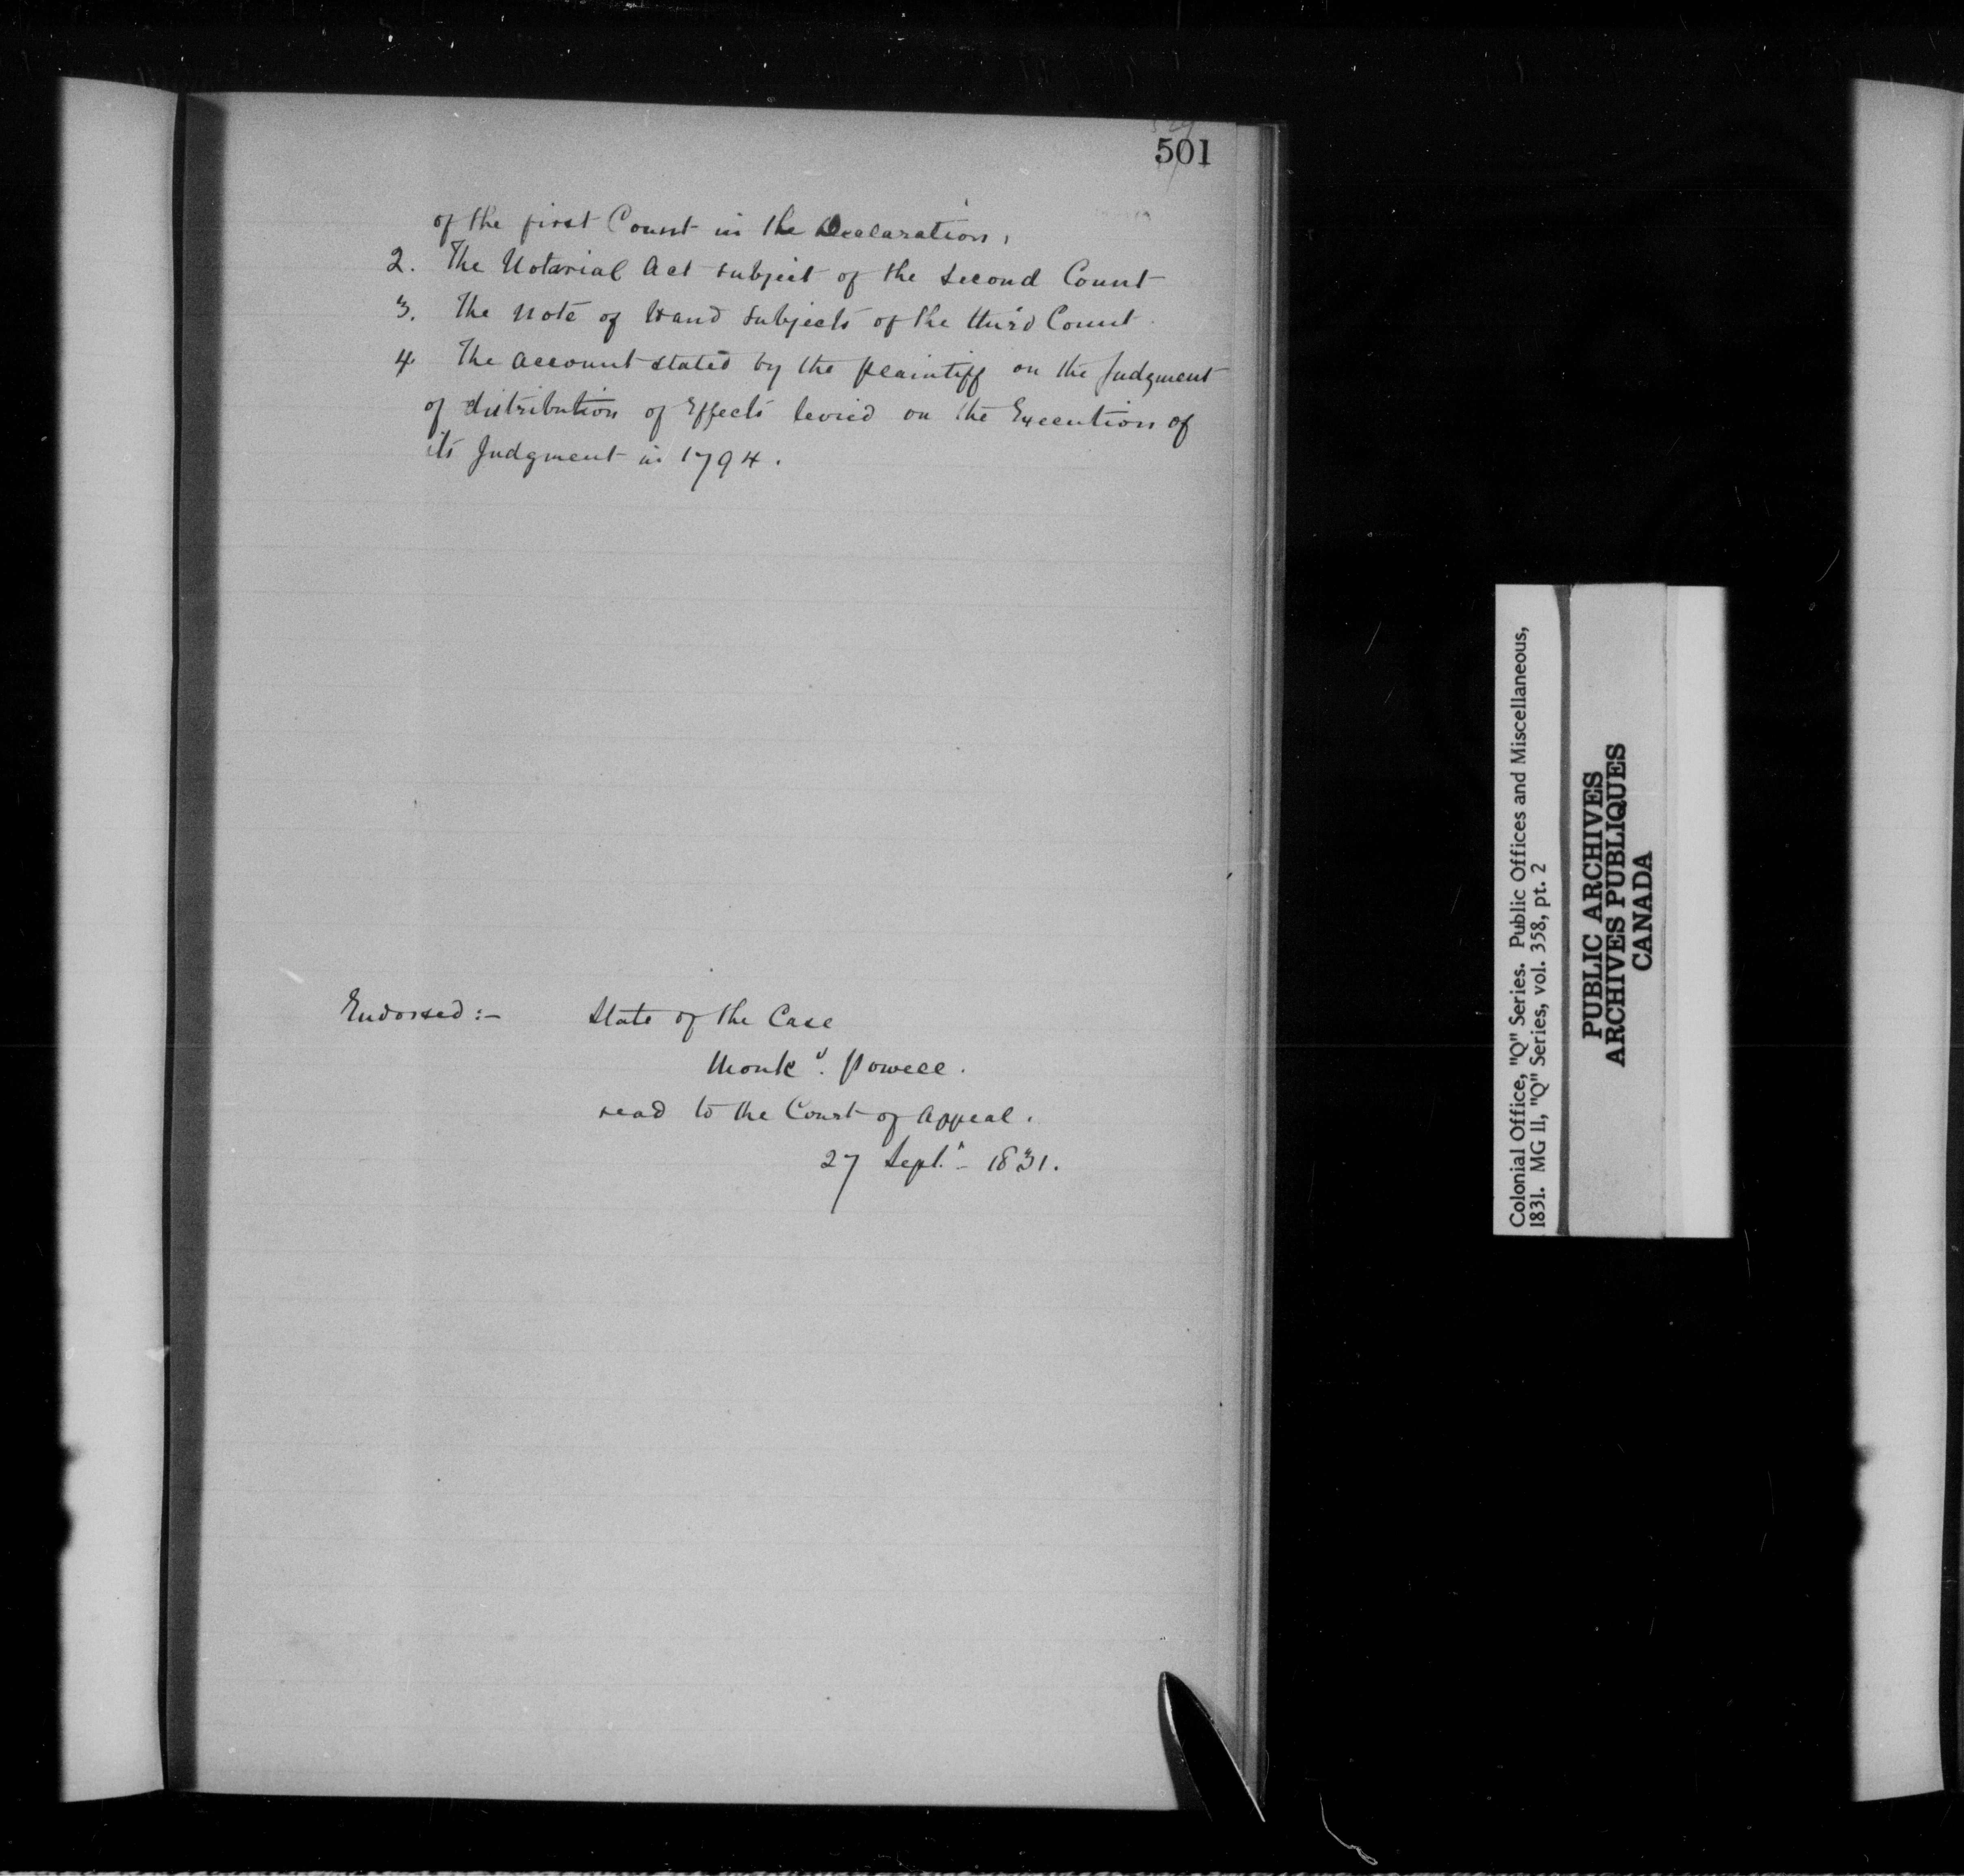 501
of the first Count in the Declaration,
2. The Notarial Act subject of the Second Count
3. The Note of Hand subjects of the third Count.
4 The Account stated by the plaintiff on the Judgment
of distribution of Effects levied on the Execution of
its Judgment in 1794.
Endorsed:- State of the Case
Monk v. Powell.
read to the Court of Appeal.
27 Septr - 1831.
Colonial Office, "Q" Series. Public Offices and Miscellaneous,
1831. MG 11, "Q" Series, vol. 358, pt. 2
PUBLIC ARCHIVES
ARCHIVES PUBLIQUES
CANADA